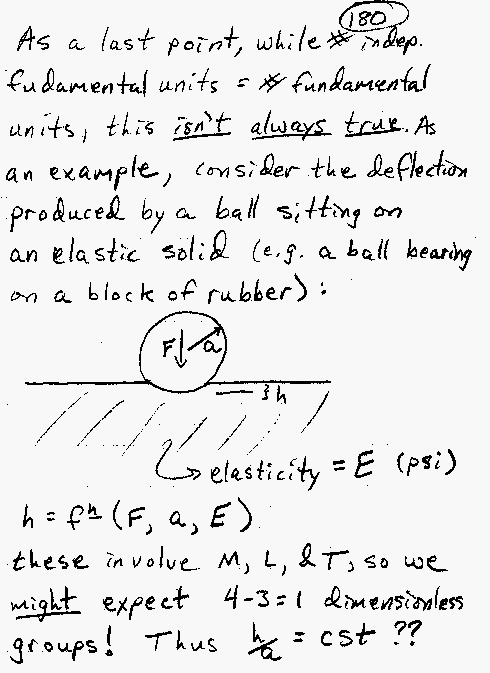 180
As a last point, while # indep.
fudamental units = # fundamental
units, this isn't always true. As
an example, consider the deflection
produced by a ball sitting on
an elastic solid (e.g. a ball bearing
on a block of rubber):
F a
h
elasticity = E (psi)
h = fⁿ (F, a, E)
these involve M, L, & T, so we
might expect 4-3=1 dimensionless
groups! Thus h/a = cst ??